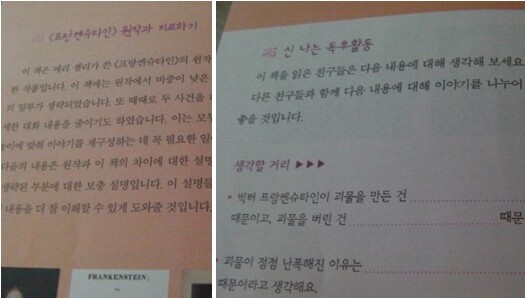 〈프랑켄슈타인〉 원작과 비교하기
이 책은 메리 셸리가 쓴 〈프랑켄슈타인〉의 원작
한 작품입니다. 이 책에는 원작에서 비중이 낮은
의 일부가 생략되었습니다. 또 때때로 두 사건을
대화 내용을 줄이기도 하였습니다. 이는 모두
눈높이에 맞춰 이야기를 재구성하는 데 꼭 필요한
다음의 내용은 원작과 이 책의 차이에 대한 설명
생략된 부분에 대한 보충 설명입니다. 이 설명들
내용을 더 잘 이해할 수 있게 도와줄 것입니다.
FRANKENSTEIN;
신 나는 독후활동
이 책을 읽은 친구들은 다음 내용에 대해 생각해 보세요
다른 친구들과 함께 다음 내용에 대해 이야기를 나누어
좋을 것입니다.
생각할 거리 ▶▶▶
• 빅터 프랑켄슈타인이 괴물을 만든 건
때문이고, 괴물을 버린 건 때문
• 괴물이 점점 난폭해진 이유는
때문이라고 생각해요.